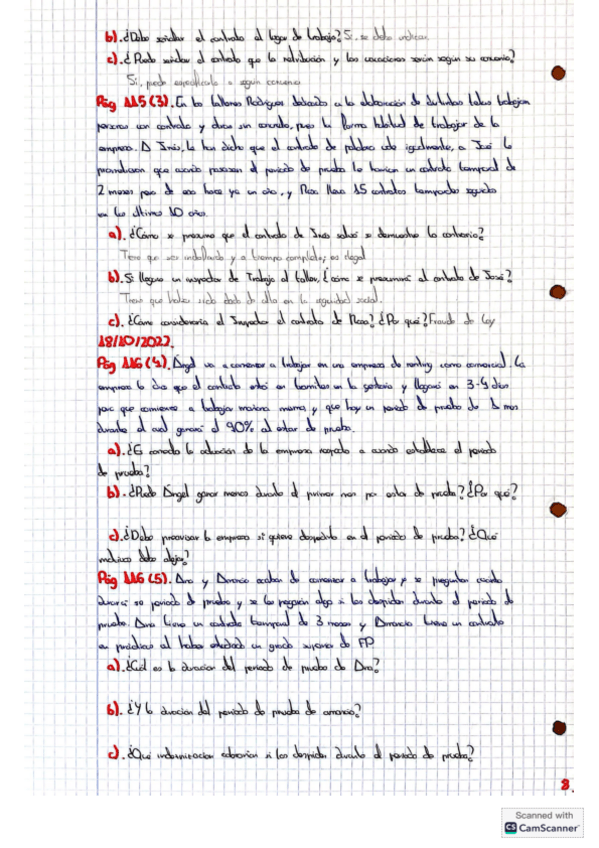 b). ¿Debe señalar el contrato el lugar de trabajo? Si, se debe indicar.
c). ¿Puede señalar el contrato que la retribución y las vacaciones serán según su convenio?
Si, puede especificarlo o según convenio
Pág 115 (3). En los talleres Rodríguez dedicado a la elaboración de distintas telas trabajan
personas con contrato y otras sin contrato, pues la forma habitual de trabajar de la
empresa. A Inés, le han dicho que el contrato de palabra vale igualmente, a José le
prometieron que cuando pasase el periodo de prueba le harían un contrato temporal de
2 meses pero de eso hace ya un año, y Rosa lleva 15 contratos temporales seguidos
en los últimos 10 años.
a). ¿Cómo se presume que el contrato de Inés salvo se demuestre lo contrario?
Tiene que ser indefinido y a tiempo completo; es ilegal
b). Si llegase un inspector de Trabajo al taller, ¿cómo se presumirá el contrato de José?
Tiene que haber sido dado de alta en la seguridad social.
c). ¿Cómo consideraría el Inspector el contrato de Rosa? ¿Por qué? Fraude de Ley
18/10/2022.
Pág 116 (4). Ángel va a comenzar a trabajar en una empresa de renting como comercial. La
empresa le dice que el contrato está en trámites en la gestoría y llegará en 3-4 días
pero que comience a trabajar mañana mismo, y que hay un periodo de prueba de 1 mes
durante el cual ganará el 90% al estar de prueba.
a). ¿Es correcta la actuación de la empresa respecto a cuando establece el periodo
de prueba?
b). ¿Puede Ángel ganar menos durante el primer mes por estar de prueba? ¿Por qué?
c). ¿Debe preavisar la empresa si quiere despedirlo en el periodo de prueba? ¿Qué
motivos debe alegar?
Pág 116 (5). Ana y Amancio acaban de comenzar a trabajar y se preguntan cuánto
durará su periodo de prueba y si les pagarán algo si los despiden durante el periodo de
prueba. Ana tiene un contrato temporal de 3 meses y Amancio tiene un contrato
en prácticas al haber estudiado un grado superior de FP
a). ¿Cuál es la duración del periodo de prueba de Ana?
b). ¿Y la duración del periodo de prueba de amancio?
c). ¿Qué indemnización cobrarían si los despiden durante el periodo de prueba?
8.
Scanned with
CS CamScanner